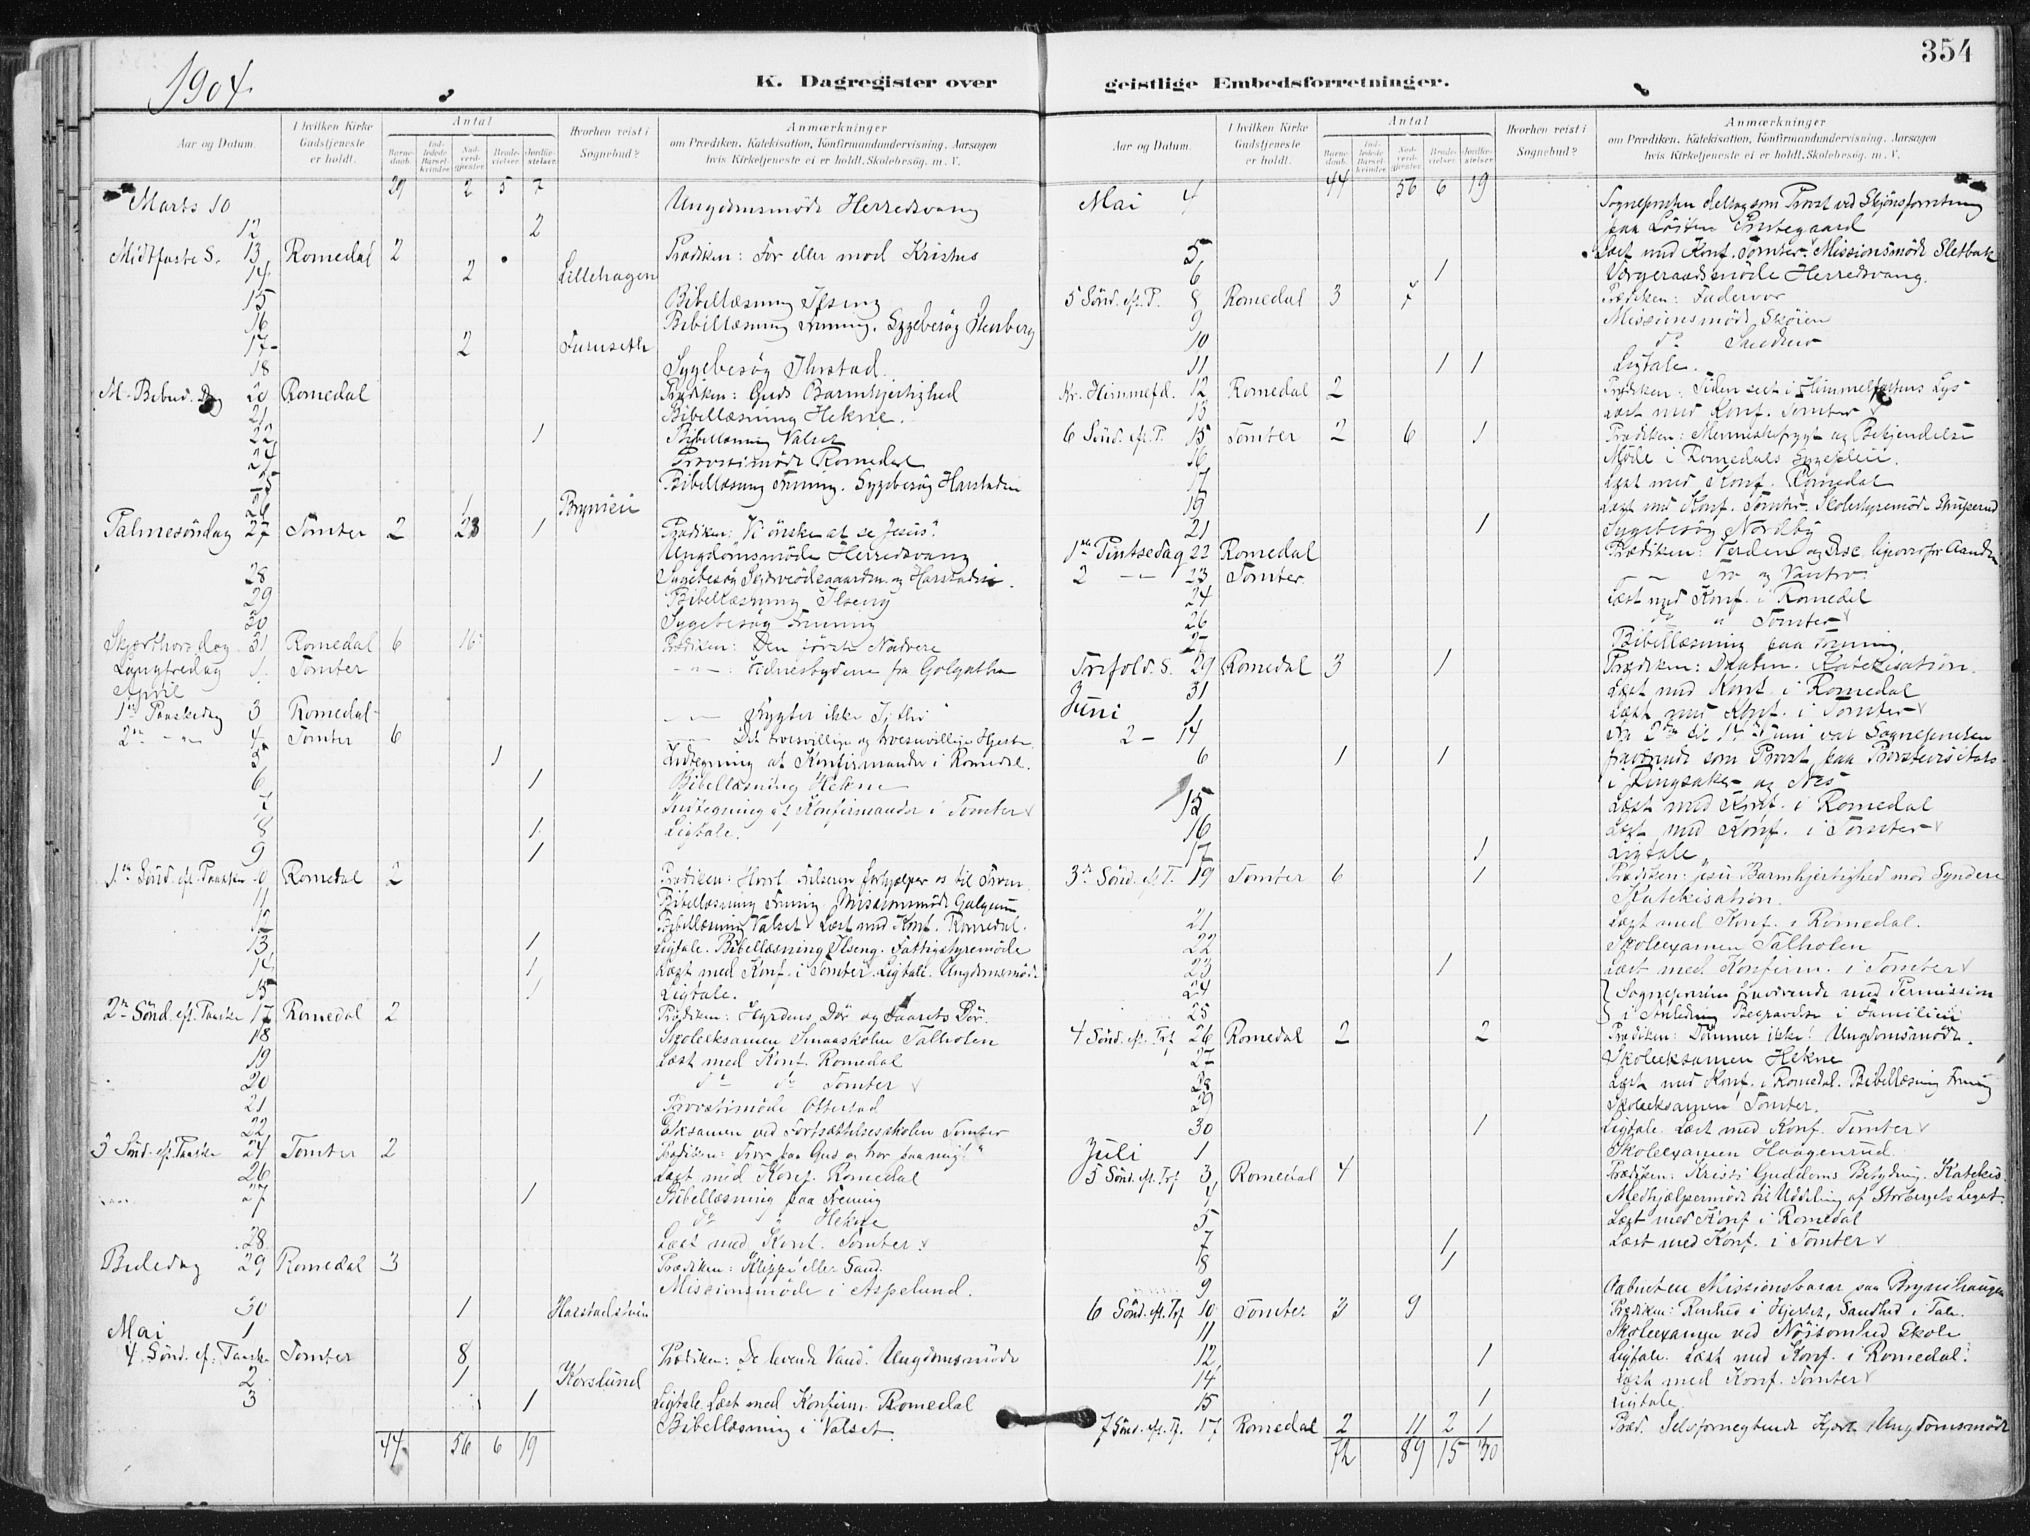 354
1904.
K. Dagregister over geistlige Embedsforretninger.
Aar og Datum. | I hvilken Kirke Gudstjeneste er holdt. | Antal | Barne-daab. | Ind-ledede Barsel-kvinder. | Nad-verd-gjester. | Brude-vielser. | Jordfæ-stelser. | Hvorhen reist i Sognebud? | Anmærkninger om Prædiken, Katekisation, Konfirmandundervisning, Aarsagen hvis Kirketjeneste ei er holdt. Skolebesøg. m. V.
29 2 5 7
Marts 10 Ungdomsmøde Herredsvang
12 2
Midtfaste S. 13 Romedal 2 Prædiken: For eller mod Kristus
14 2 Lillehagen
15 Bibellæsning Ilseng
16 Bibellæsning Frening. Sygebesøg
17 2 Furuseth
18 Sygebesøg
M. Bebud. Dag 20 Romedal Prædiken: Guds Barmhjertighed
21 Bibellæsning Hekne.
22 1 Bibellæsning Valset
24 Provstimøde Romedal
25 Bibellæsning Frening. Sygebesøg Harstaden
26 1 Brynieie
Palmesøndag 27 Tomter 2 23 1 Prædiken: Vi ønske at se Jesus.
Ungdomsmøde Herredsvang
28 Sygebesøg og Harstadeie.
29 Bibellæsning Ilseng
30 Sygebesøg Frening
Skjærthorsdag 31 Romedal 6 16 Prædiken: Den første Nadvere
Langfredag 1. Tomter Vidnesbydene fra Golgatha
April
1ste Paaskedag 3 Romedal Frygter ikke
2den 4 Tomter 6 Det og Hjerte
5 1 Indtegning af Konfirmander i Romedal.
6 1 Bibellæsning Hekne
7 Indtegning af Konfirmander i Tomter
8 1 Ligtale.
9 1
1ste Sønd. eft. Paaske Romedal 2 Prædiken:
11 Bibellæsning Frening Missionsmøde
12 Bibellæsning Valset Læst med Konf. Romedal.
13 1 Ligtale. Bibellæsning Ilseng. Fattigstyremøde
14 1 Læst med Konf. i Tomter. Ligtale. Ungdomsmøde
15 1 Ligtale.
2den Sønd. eft. Paaske 17 Romedal 2 Prædiken: Hyrdens Dør og Faarets Dør.
18 Skoleeksamen Smaaskolen Talholen
19 Læst med Konf. Romedal
20 do do Tomter
21 Provstimøde Otterstad
22 Eksamen ved Fortsættelsesskolen Tomter
3 Sønd. eft. Paaske 24 Tomter 2 Prædiken: Tror paa Gud og tror paa mig!
26 Læst med Konf. Romedal
27 1 Bibellæsning paa Frening
do Hekne
28. Læst med Konf. Tomter
Bededag 29 Romedal 3 Prædiken: Klippe eller Sand.
Missionsmøde i Aspelund.
30 1
Mai 1
4. Sønd. ef. Paaske Tomter 8 Prædiken: De levende Vand. Ungdomsmøde
2 1 Korslund
3 1 Ligtale. Læst med Konfirm. Romedal
Bibellæsning i Valset.
44 56 6 19
Aar og Datum. | I hvilken Kirke Gudstjeneste er holdt. | Antal | Barne-daab. | Ind-ledede Barsel-kvinder. | Nad-verd-gjester. | Brude-vielser. | Jordfæ-stelser. | Hvorhen reist i Sognebud? | Anmærkninger om Prædiken, Katekisation, Konfirmandundervisning, Aarsagen hvis Kirketjeneste ei er holdt. Skolebesøg. m. V.
44 56 6 19
Mai 4 Sognepresten deltog som Provst ved Skjønsforretning
paa Løiten Prestegaard
5 Læst med Konf. Tomter. Missionsmøde Sletbak
6 1 Værgeraadsmøde Herredsvang.
5 Sønd. eft. P. 8 Romedal 3 7 Prædiken: Fadervor
9 Missionsmøde Skøien
10 do
11 1 1 Ligtale.
Kr. Himmelfd. 12 Romedal 2 Prædiken: Siden seet i Himmelfartens Lys
13 Læst med Konf. Tomter
6 Sønd. eft. P. 15 Tomter 2 6 1 Prædiken: Menneskefrygt og Bekjendelse
16 Møde i Romedals Sygepleie.
17 Læst med Konf. Romedal
19 Læst med Konf. Tomter. Skolestyremøde
21 1 Sygebesøg Nordby
1ste Pintsedag 22 Romedal Prædiken: Verden og for Aanden
2 23 Tomter Tro og Vantro
24 Læst med Konf. i Romedal
26 Tomter
27 Bibellæsning paa Frening.
Trefold. S. 29 Romedal 3 1 Prædiken: Daaben. Katekisation.
31 Læst med Konf. i Romedal
Juni 1 Læst med Konf. i Tomter
2 - 14 Fra 2den til 14 Juni var Sognepresten
6 1 1 fraværende som Provst paa
i Ringsaker og Nes
15 Læst med Konf. i Romedal
16 Læst med Konf. i Tomter
17 1 Ligtale
3die Sønd. eft. T. 19 Tomter 6 1 Prædiken: Jesu Barmhjertighed mod Syndere
Katekisation.
21 Læst med Konf. i Romedal.
22 Skoleexamen Talholen
23 1 Læst med Konfirm. i Tomter
24 Sognepresten fraværende med Permission
25 i Anledning Begravelse i Familien
4 Sønd. eft. Tref 26 Romedal 2 2 Prædiken: Dømmer ikke! Ungdomsmøde.
27 Skoleeksamen Hekne
28 Læst med Konf. i Romedal. Bibellæsning Frening
29 Skoleeksamen Tomter.
30 1 Ligtale. Læst med Konf. Tomter
Juli 1 Skoleexamen Haagenrud.
5 Sønd. eft. Tref 3 Romedal 4 Prædiken: Kristi Guddoms Betydning. Katekis.
4 Medhjælpermøde til Uddeling af Storbergets Legat.
5 Læst med Konf i Romedal
7 1 Læst med Konf. i Tomter
8 1
9 Aabnet en Missionsbasar paa Brynshaugen
6 Sønd. eft. Tref 10 Tomter 3 9 Prædiken: Renhed i Hjertet, Sandhed i Tale.
11 Skoleexamen ved Nøisomhed Skole
12 1 Ligtale. Læst med Konf. i Romedal.
14 Læst med Konf. Tomter
15 1 Ligtale
7 Sønd. eft. Tr. 17 Romedal 2 11 2 1 Præd. Selvfornegtende Kjærl. Ungdomsmøde
72 89 15 30